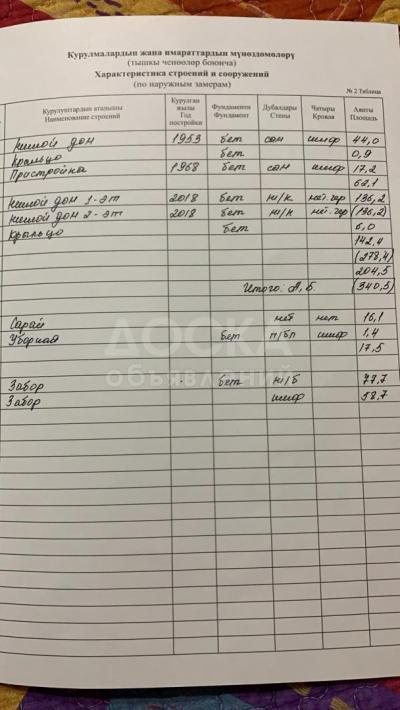 Курулмалардын жана имараттардын мүнөздөмөлөрү
(тышкы ченөөлөр боюнча)
Характеристика строений и сооружений
(по наружным замерам)
№ 2 Таблица
Курулуштардын аталышы Наименование строений Курулган жылы Год постройки Фундаменти Фундамент Дубалдары Стены Чатыры Кровля Аянты Площадь
жилой дом 1953 бет сам шиф 44,0
Крыльцо бет 0,9
Пристройка 1968 бет сам шиф 17,2
62,1
жилой дом 1-эт 2018 бет ж/к мет.чер 136,2
жилой дом 2-эт 2018 бет ж/к мет.чер (136,2)
Крыльцо бет 6,0
142,4
(278,4)
204,5
Итого: А, Б (340,5)
Сарай нет нет 16,1
Уборная бет п/бл шиф 1,4
17,5
Забор - бет ж/б 77,7
Забор шиф 58,7
ДОСКА
объявлений